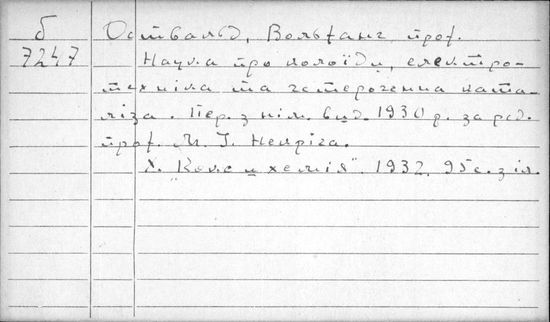 б
7247
Оствальд, Вольфанг, проф.
Наука про колоїди, електро-
техніка та гетерогенна ката-
ліза. Пер. з нім. вид. 1930 р. за ред.
проф. М. І. Некріга.
Х. "Кокс и хемія". 1932. 95 с. з іл.